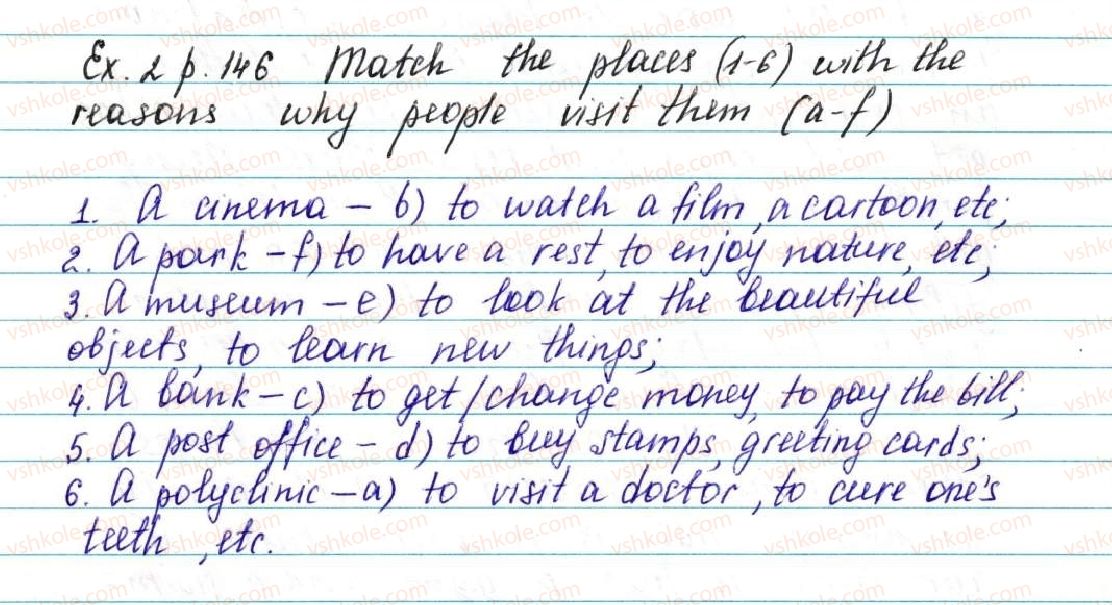 Ex. 2 p. 146 Match the places (1-6) with the
reasons why people visit them (a-f)
1. A cinema – b) to watch a film, a cartoon, etc;
2. A park – f) to have a rest, to enjoy nature, etc;
3. A museum – e) to look at the beautiful
objects, to learn new things;
4. A bank – c) to get/change money, to pay the bill;
5. A post office – d) to buy stamps, greeting cards;
6. A polyclinic – a) to visit a doctor, to cure one's
teeth, etc.